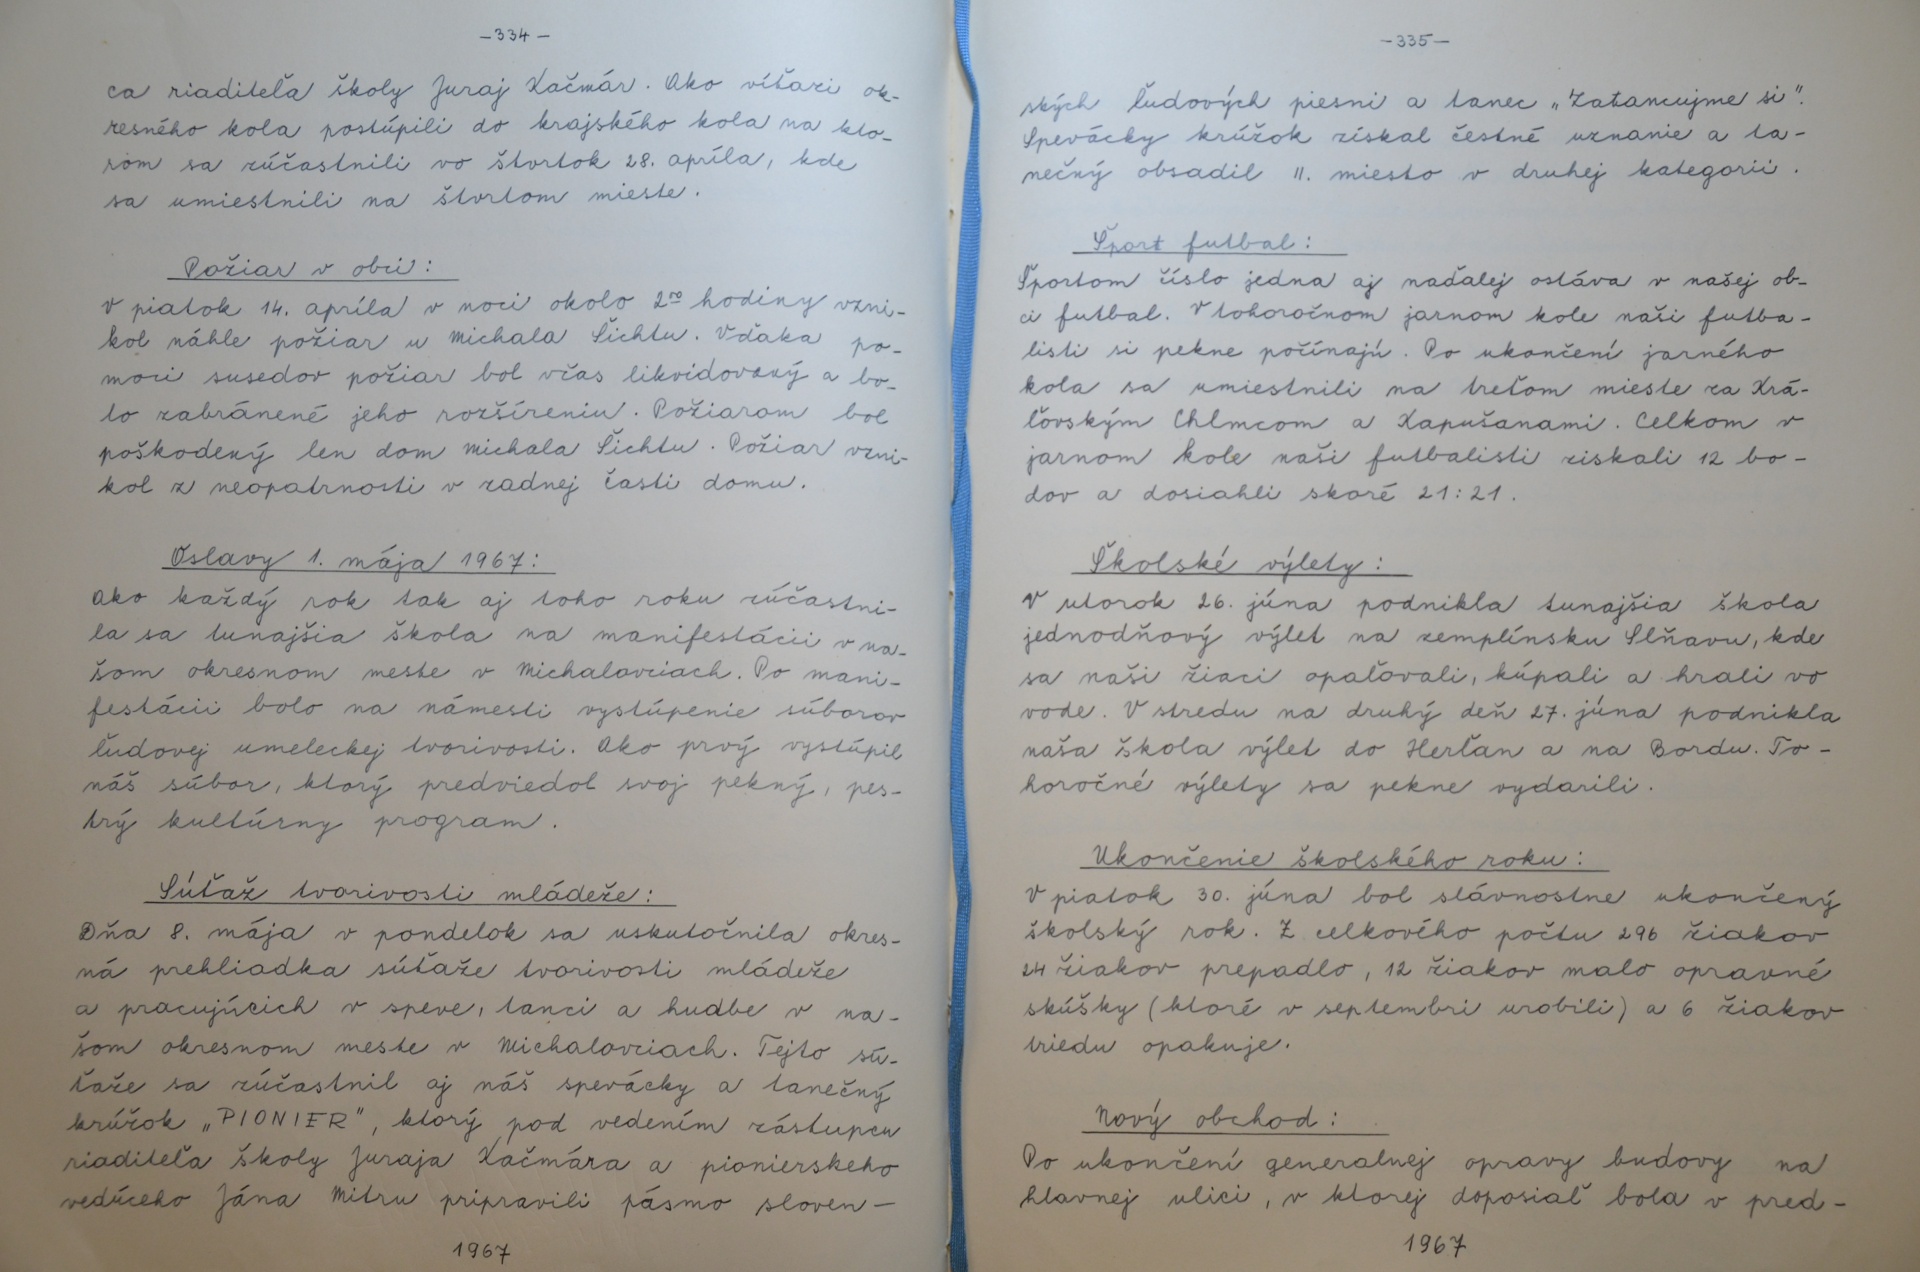 -334-
ca riaditeľa školy Juraj Kačmár. Ako víťazi ok-
resného kola postúpili do krajského kola na kto-
rom sa zúčastnili vo štvrtok 28. apríla, kde
sa umiestnili na štvrtom mieste.
Požiar v obci:
V piatok 14. apríla v noci okolo 2⁰⁰ hodiny vzni-
kol náhle požiar u Michala Šichtu. Vďaka po-
moci susedov požiar bol včas likvidovaný a bo-
lo zabránené jeho rozšíreniu. Požiarom bol
poškodený len dom Michala Šichtu. Požiar vzni-
kol z neopatrnosti v zadnej časti domu.
Oslavy 1. mája 1967:
Ako každý rok tak aj toho roku zúčastni-
la sa tunajšia škola na manifestácii v na-
šom okresnom meste v Michalovciach. Po mani-
festácii bolo na námesti vystúpenie súborov
ľudovej umeleckej tvorivosti. Ako prvý vystúpil
náš súbor, ktorý predviedol svoj pekný, pes-
trý kultúrny program.
Súťaž tvorivosti mládeže:
Dňa 8. mája v pondelok sa uskutočnila okres-
ná prehliadka súťaže tvorivosti mládeže
a pracujúcich v speve, tanci a hudbe v na-
šom okresnom meste v Michalovciach. Tejto sú-
ťaže sa zúčastnil aj náš spevácky a tanečný
krúžok „PIONIER", ktorý pod vedením zástupcu
riaditeľa školy Juraja Kačmára a pionierskeho
vedúceho Jána Mitru pripravili pásmo sloven-
1967
-335-
ských ľudových piesni a tanec „Zatancujme si".
Spevácky krúžok získal čestné uznanie a ta-
nečný obsadil II. miesto v druhej kategorii.
Šport futbal:
Športom číslo jedna aj naďalej ostáva v našej ob-
ci futbal. V tohoročnom jarnom kole naši futba-
listi si pekne počínajú. Po ukončení jarného
kola sa umiestnili na treťom mieste za Krá-
ľovským Chlmcom a Kapušanami. Celkom v
jarnom kole naši futbalisti ziskali 12 bo-
dov a dosiahli skoré 21:21.
Školské výlety:
V utorok 26. júna podnikla tunajšia škola
jednodňový výlet na zemplínsku Slňavu, kde
sa naši žiaci opaľovali, kúpali a hrali vo
vode. V stredu na druhý deň 27. júna podnikla
naša škola výlet do Herľan a na Bordu. To-
horočné výlety sa pekne vydarili.
Ukončenie školského roku:
V piatok 30. júna bol slávnostne ukončený
školský rok. Z celkového počtu 296 žiakov
24 žiakov prepadlo, 12 žiakov malo opravné
skúšky (ktoré v septembri urobili) a 6 žiakov
triedu opakuje.
Nový obchod:
Po ukončení generalnej opravy budovy na
hlavnej ulici, v ktorej doposiaľ bola v pred-
1967